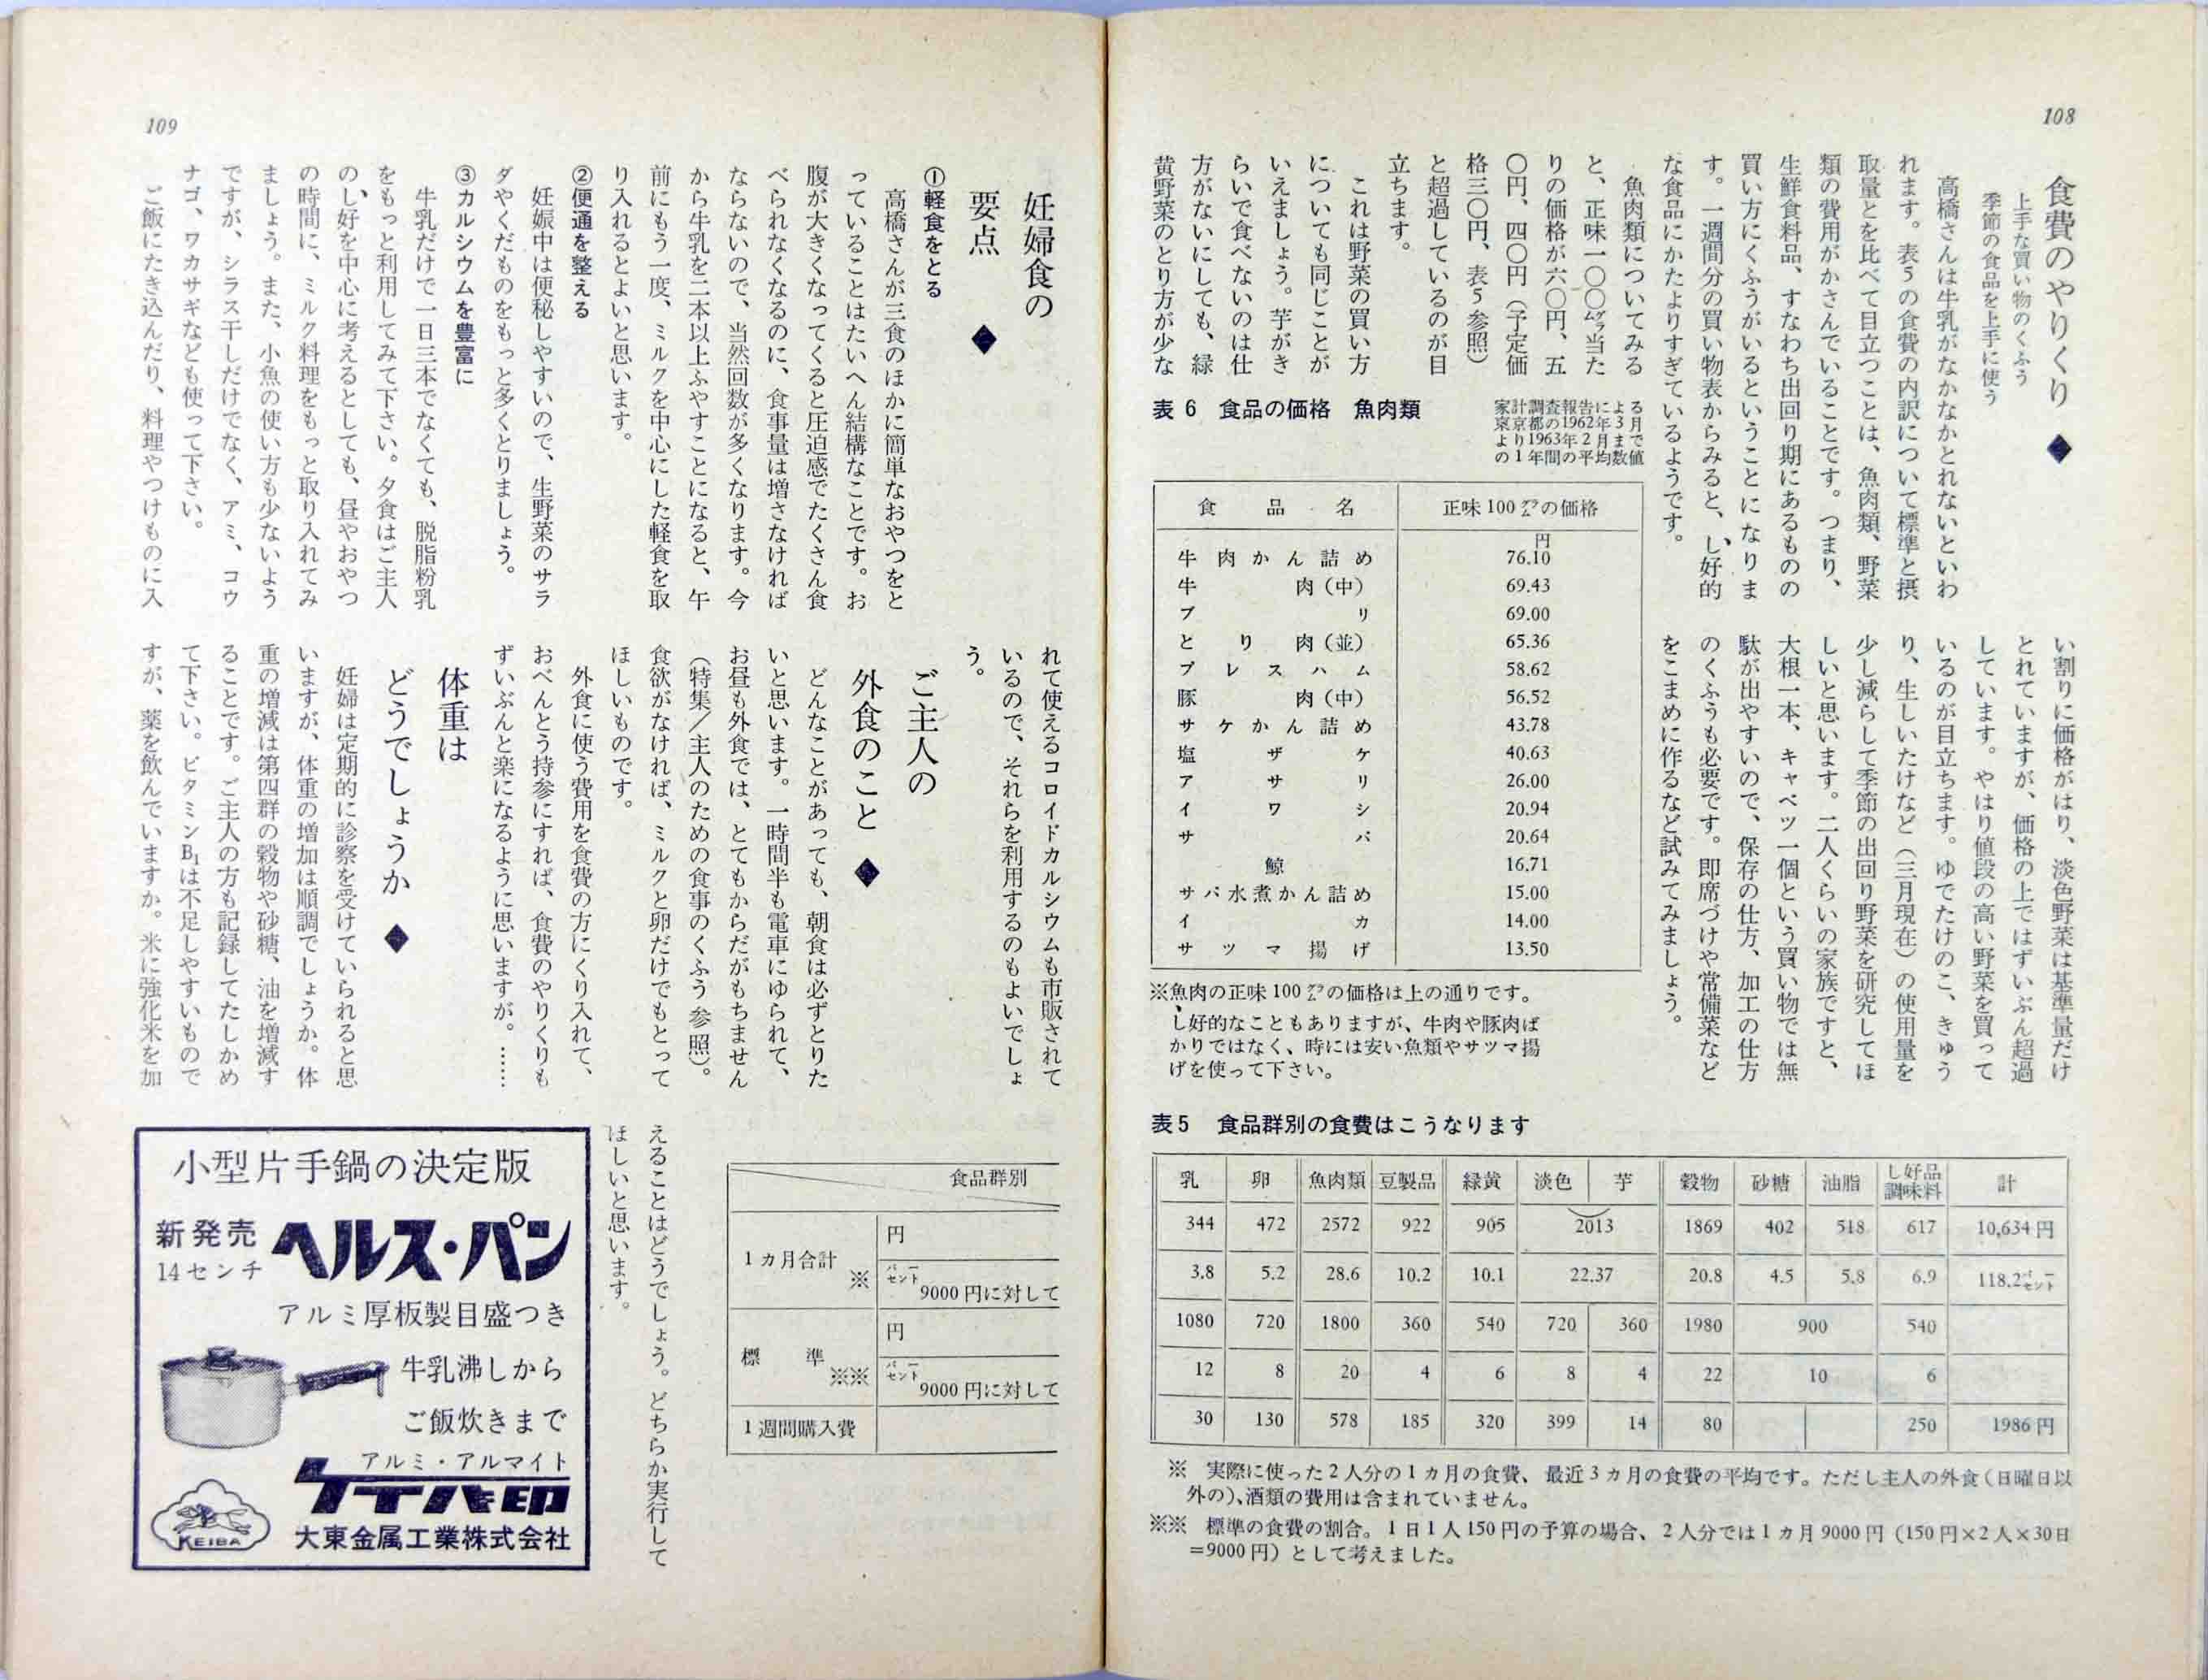 108
食費のやりくり ◆
上手な買い物のくふう
季節の食品を上手に使う
高橋さんは牛乳がなかなかとれないといわ
れます。表5の食費の内訳について標準と摂
取量とを比べて目立つことは、魚肉類、野菜
類の費用がかさんでいることです。つまり、
生鮮食料品、すなわち出回り期にあるものの
買い方にくふうがいるということになりま
す。一週間分の買い物表からみると、し好的
な食品にかたよりすぎているようです。
魚肉類についてみる
と、正味一〇〇グラム当た
りの価格が六〇円、五
〇円、四〇円（予定価
格三〇円、表5参照）
と超過しているのが目
立ちます。
これは野菜の買い方
についても同じことが
いえましょう。芋がき
らいで食べないのは仕
方がないにしても、緑
黄野菜のとり方が少な
い割りに価格がはり、淡色野菜は基準量だけ
とれていますが、価格の上ではずいぶん超過
しています。やはり値段の高い野菜を買って
いるのが目立ちます。ゆでたけのこ、きゅう
り、生しいたけなど（三月現在）の使用量を
少し減らして季節の出回り野菜を研究してほ
しいと思います。二人くらいの家族ですと、
大根一本、キャベツ一個という買い物では無
駄が出やすいので、保存の仕方、加工の仕方
のくふうも必要です。即席づけや常備菜など
をこまめに作るなど試みてみましょう。
表6 食品の価格 魚肉類
家計調査報告による
東京都の1962年3月
より1963年2月まで
の1年間の平均数値
食品名 正味100グラムの価格
円
牛肉かん詰め 76.10
牛肉（中） 69.43
ブリ 69.00
とり肉（並） 65.36
プレスハム 58.62
豚肉（中） 56.52
サケかん詰め 43.78
塩ザケ 40.63
アサリ 26.00
イワシ 20.94
サバ 20.64
鯨 16.71
サバ水煮かん詰め 15.00
イカ 14.00
サツマ揚げ 13.50
※魚肉の正味100グラムの価格は上の通りです。
し好的なこともありますが、牛肉や豚肉ば
かりではなく、時には安い魚類やサツマ揚
げを使って下さい。
表5 食品群別の食費はこうなります
乳 卵 魚肉類 豆製品 緑黄 淡色 芋 穀物 砂糖 油脂 し好品調味料 計
344 472 2572 922 905 2013 1869 402 518 617 10,634円
3.8 5.2 28.6 10.2 10.1 22.37 20.8 4.5 5.8 6.9 118.2パーセント
1080 720 1800 360 540 720 360 1980 900 540
12 8 20 4 6 8 4 22 10 6
30 130 578 185 320 399 14 80 250 1986円
※ 実際に使った2人分の1カ月の食費、最近3カ月の食費の平均です。ただし主人の外食（日曜日以
外の）、酒類の費用は含まれていません。
※※ 標準の食費の割合。1日1人150円の予算の場合、2人分では1カ月9000円（150円×2人×30日
=9000円）として考えました。
109
妊婦食の
要点 ◆
①軽食をとる
高橋さんが三食のほかに簡単なおやつをと
っていることはたいへん結構なことです。お
腹が大きくなってくると圧迫感でたくさん食
べられなくなるのに、食事量は増さなければ
ならないので、当然回数が多くなります。今
から牛乳を二本以上ふやすことになると、午
前にもう一度、ミルクを中心にした軽食を取
り入れるとよいと思います。
②便通を整える
妊娠中は便秘しやすいので、生野菜のサラ
ダやくだものをもっと多くとりましょう。
③カルシウムを豊富に
牛乳だけで一日三本でなくても、脱脂粉乳
をもっと利用してみて下さい。夕食はご主人
のし好を中心に考えるとしても、昼やおやつ
の時間に、ミルク料理をもっと取り入れてみ
ましょう。また、小魚の使い方も少ないよう
ですが、シラス干しだけでなく、アミ、コウ
ナゴ、ワカサギなども使って下さい。
ご飯にたき込んだり、料理やつけものに入
れて使えるコロイドカルシウムも市販されて
いるので、それらを利用するのもよいでしょ
う。
ご主人の
外食のこと ◆
どんなことがあっても、朝食は必ずとりた
いと思います。一時間半も電車にゆられて、
お昼も外食では、とてもからだがもちません
（特集／主人のための食事のくふう参照）。
食欲がなければ、ミルクと卵だけでもとって
ほしいものです。
外食に使う費用を食費の方にくり入れて、
おべんとう持参にすれば、食費のやりくりも
ずいぶんと楽になるように思いますが。……
体重は
どうでしょうか ◆
妊婦は定期的に診察を受けていられると思
いますが、体重の増加は順調でしょうか。体
重の増減は第四群の穀物や砂糖、油を増減す
ることです。ご主人の方も記録してたしかめ
て下さい。ビタミンB₁は不足しやすいもので
すが、薬を飲んでいますか。米に強化米を加
えることはどうでしょう。どちらか実行して
ほしいと思います。
食品群別
1カ月合計 ※ 円
パーセント 9000円に対して
標準 ※※ 円
パーセント 9000円に対して
1週間購入費
小型片手鍋の決定版
新発売
14センチ
ヘルス・パン
アルミ厚板製目盛つき
牛乳沸しから
ご飯炊きまで
アルミ・アルマイト
ケイバ印
KEIBA
大東金属工業株式会社